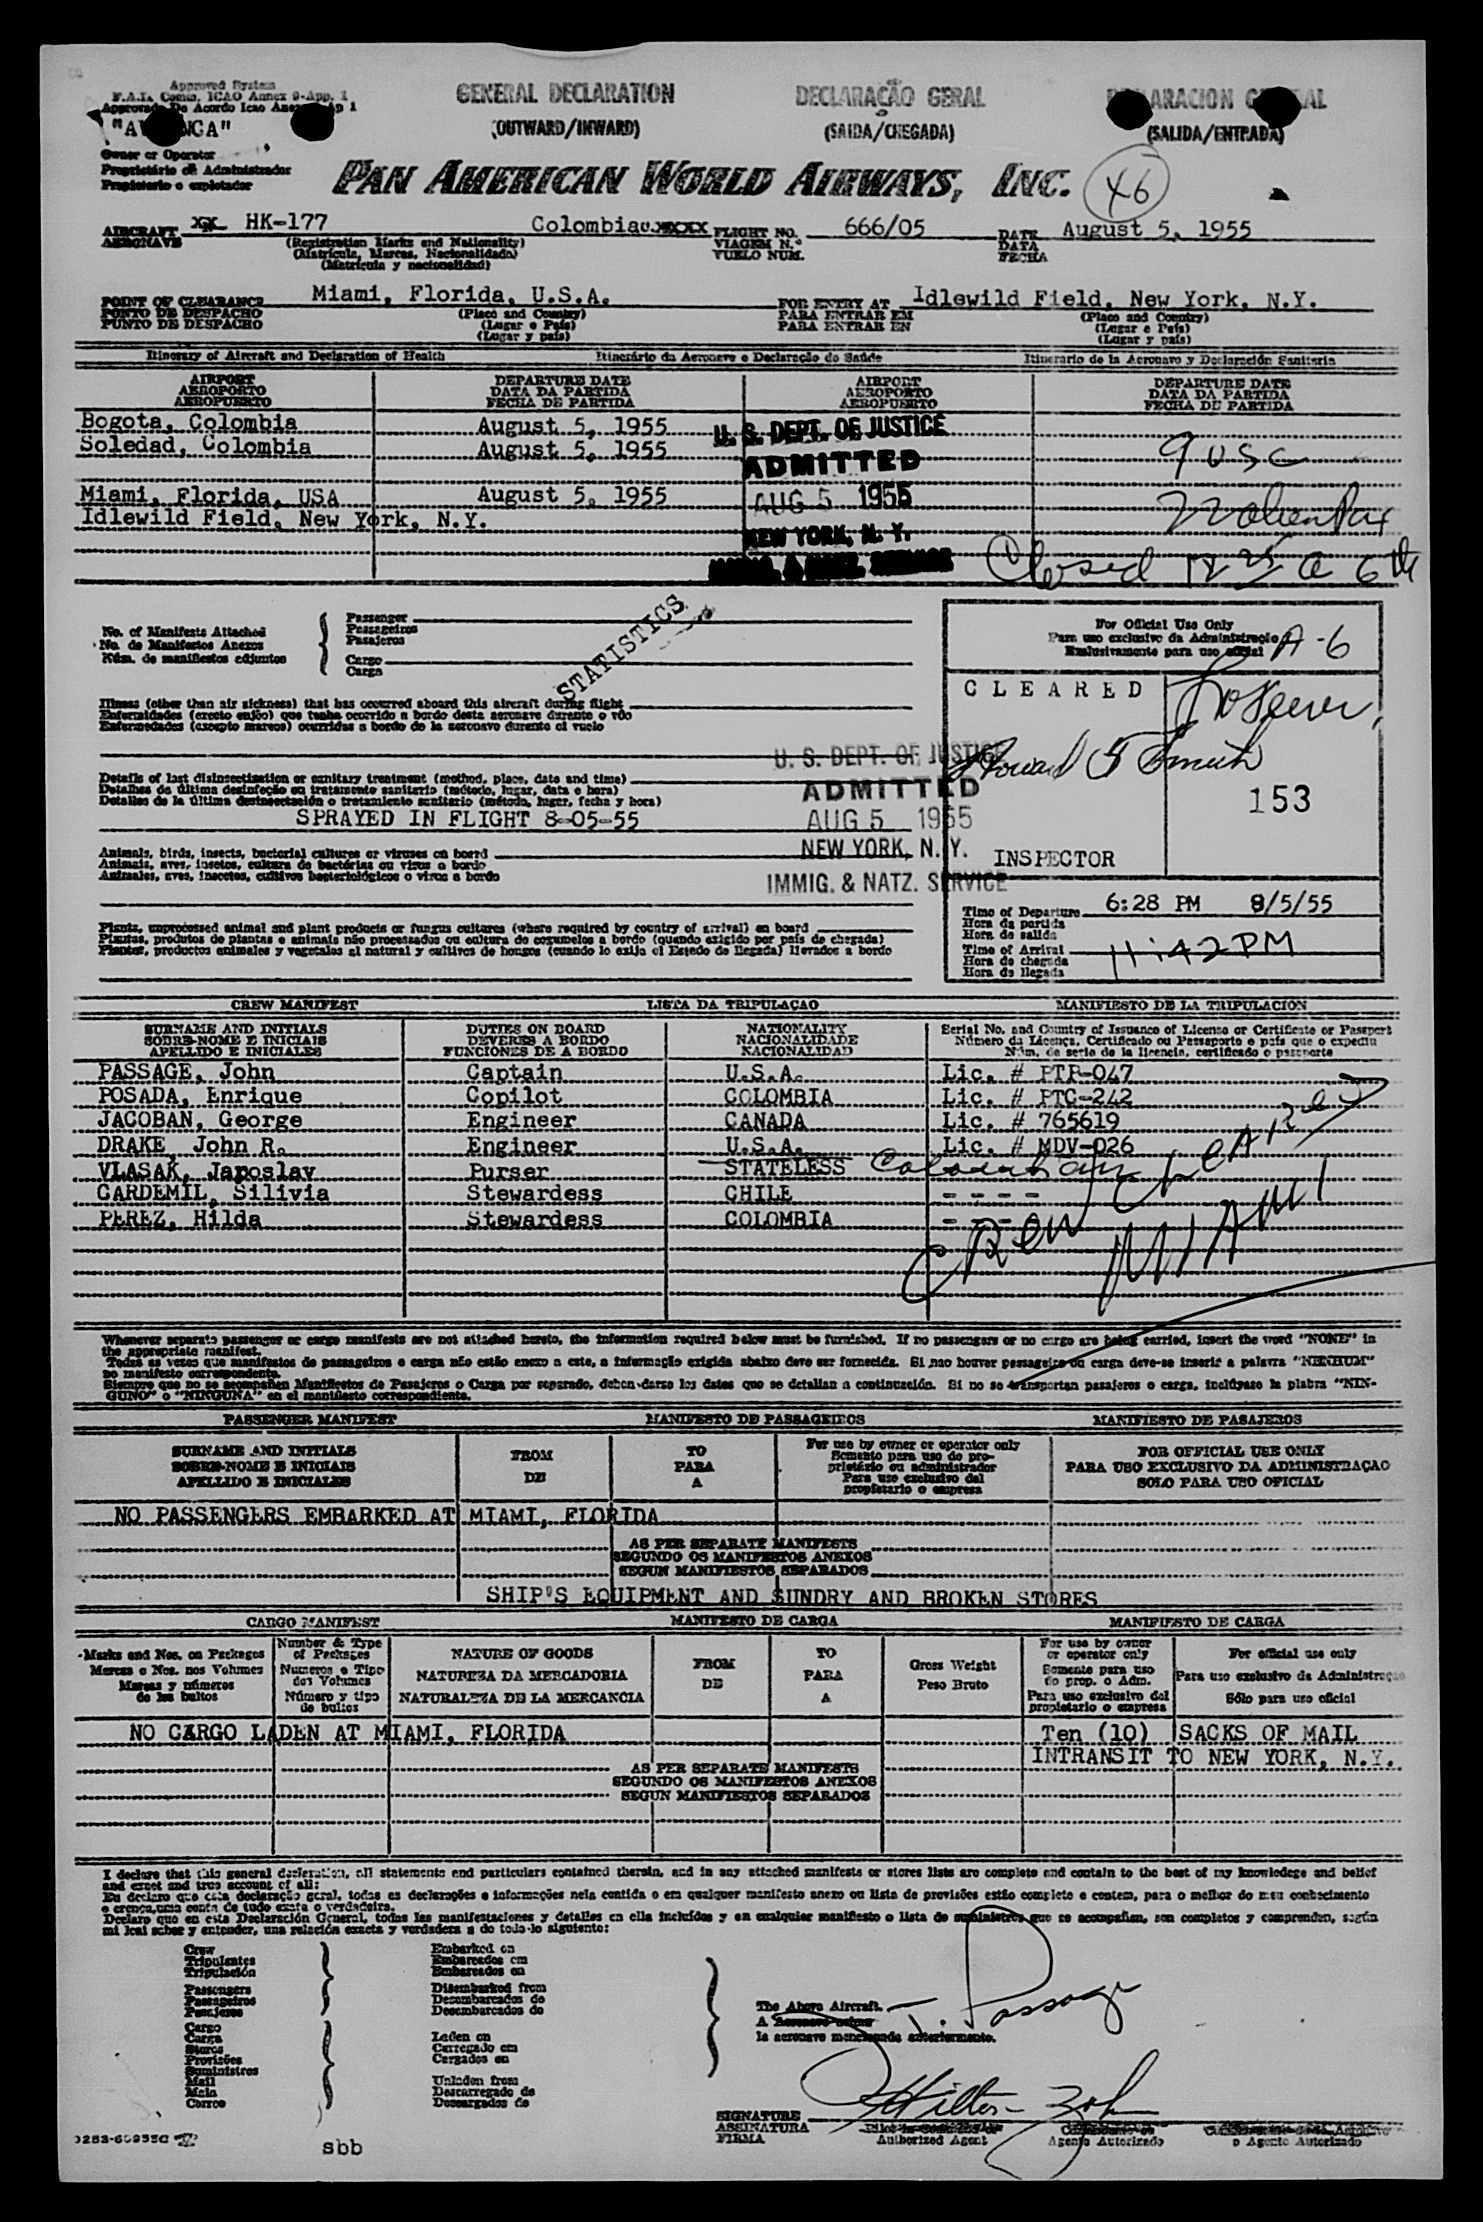 Approved System
F.A.L. Comm. ICAO Annex 9-App. 1
Aprovado De Acordo Icao Anexo Ap 1
GENERAL DECLARATION
DECLARAÇÃO GERAL
(OUTWARD/INWARD)
(SAIDA/CHEGADA)
(SALIDA/ENTRADA)
Owner or Operator
Proprietário de Administrador
Propietario o explotador
PAN AMERICAN WORLD AIRWAYS, INC.
46
AIRCRAFT xx HK-177 Colombia
AERONAVE
(Registration Marks and Nationality)
(Matricula, Marcas, Nacionalidado)
(Matricula y nacionalidad)
FLIGHT NO. 666/05
VIAGEM N.º
VUELO NUM.
DATE August 5, 1955
DATA
FECHA
POINT OF CLEARANCE Miami, Florida, U.S.A.
PONTO DE DESPACHO
PUNTO DE DESPACHO
(Place and Country)
(Lugar e País)
(Lugar y país)
FOR ENTRY AT Idlewild Field, New York, N.Y.
PARA ENTRAR EM
PARA ENTRAR EN
(Place and Country)
(Lugar e País)
(Lugar y país)
Itinerary of Aircraft and Declaration of Health
Itinerário da Aeronave e Declaração de Saúde
Itinerario de la Aeronave y Declaración Sanitaria
AIRPORT
AEROPORTO
AEROPUERTO
DEPARTURE DATE
DATA DA PARTIDA
FECHA DE PARTIDA
AIRPORT
AEROPORTO
AEROPUERTO
DEPARTURE DATE
DATA DA PARTIDA
FECHA DE PARTIDA
Bogota, Colombia August 5, 1955
Soledad, Colombia August 5, 1955
Miami, Florida, USA August 5, 1955
Idlewild Field, New York, N.Y.
U. S. DEPT. OF JUSTICE
ADMITTED
AUG 5 1955
NEW YORK, N. Y.
IMMIG. & NATZ. SERVICE
9 USC
Closed 12 25 a 6th
No. of Manifests Attached
No. de Manifestos Anexos
Núm. de manifiestos adjuntos
Passenger
Passageiros
Pasajeros
Cargo
Carga
STATISTICS
For Official Use Only
Para uso exclusivo da Administração
Exclusivamente para uso oficial
A-6
CLEARED
Howard F Smith
153
INSPECTOR
Illness (other than air sickness) that has occurred aboard this aircraft during flight
Enfermidades (exceto enjôo) que tenha ocorrido a bordo desta aeronave durante o vôo
Enfermedades (excepto mareos) ocurridas a bordo de la aeronave durante el vuelo
U. S. DEPT. OF JUSTICE
ADMITTED
AUG 5 1955
NEW YORK, N. Y.
IMMIG. & NATZ. SERVICE
Details of last disinsectization or sanitary treatment (method, place, date and time)
Detalhes da última desinfeção ou tratamento sanitario (método, lugar, data e hora)
Detalles de la última desinsectación o tratamiento sanitario (método, lugar, fecha y hora)
SPRAYED IN FLIGHT 8-05-55
Animals, birds, insects, bacterial cultures or viruses on board
Animais, aves, insetos, cultura de bactérias ou virus a bordo
Animales, aves, insectos, cultivos bacteriológicos o virus a bordo
Plants, unprocessed animal and plant products or fungus cultures (where required by country of arrival) on board
Plantas, produtos de plantas e animais não processados ou cultura de cogumelos a bordo (quando exigido por país de chegada)
Plantas, productos animales y vegetales al natural y cultivos de hongos (cuando lo exija el Estado de llegada) llevados a bordo
Time of Departure 6:28 PM 8/5/55
Hora da partida
Hora de salida
Time of Arrival 11:42 PM
Hora de chegada
Hora de llegada
CREW MANIFEST
LISTA DA TRIPULAÇAO
MANIFIESTO DE LA TRIPULACION
SURNAME AND INITIALS
SOBRE-NOME E INICIAIS
APELLIDO E INICIALES
DUTIES ON BOARD
DEVERES A BORDO
FUNCIONES DE A BORDO
NATIONALITY
NACIONALIDADE
NACIONALIDAD
Serial No. and Country of Issuance of License or Certificate or Passport
Número da Licença, Certificado ou Passaporte e país que o expediu
Núm. de serie de la licencia, certificado o pasaporte
PASSAGE, John Captain U.S.A. Lic. # PTP-047
POSADA, Enrique Copilot COLOMBIA Lic. # PTC-242
JACOBAN, George Engineer CANADA Lic. # 765619
DRAKE, John R. Engineer U.S.A. Lic. # MDV-026
VLASAK, Jaroslav Purser STATELESS Colombian
GARDEMIL, Silivia Stewardess CHILE - - - -
PEREZ, Hilda Stewardess COLOMBIA - - -
CREW CLEARED
MIAMI
Whenever separate passenger or cargo manifests are not attached hereto, the information required below must be furnished. If no passengers or no cargo are being carried, insert the word "NONE" in
the appropriate manifest.
Todas as vezes que manifestos de passageiros e carga não estão anexo a este, a informação exigida abaixo deve ser fornecida. Si nao houver passageiro ou carga deve-se inserir a palavra "NENHUM"
no manifesto correspondente.
Siempre que no se acompañen Manifiestos de Pasajeros o Carga por separado, deben darse los datos que se detallan a continuación. Si no se transportan pasajeros o carga, inclúyase la plabra "NIN-
GUNO" o "NINGUNA" en el manifiesto correspondiente.
PASSENGER MANIFEST
MANIFESTO DE PASSAGEIROS
MANIFIESTO DE PASAJEROS
SURNAME AND INITIALS
SOBRE-NOME E INICIAIS
APELLIDO E INICIALES
FROM
DE
TO
PARA
A
For use by owner or operator only
Somento para uso de pro-
prietário ou administrador
Para uso exclusivo del
propietario o empresa
FOR OFFICIAL USE ONLY
PARA USO EXCLUSIVO DA ADMINISTRAÇAO
SOLO PARA USO OFICIAL
NO PASSENGERS EMBARKED AT MIAMI, FLORIDA
AS PER SEPARATE MANIFESTS
SEGUNDO OS MANIFESTOS ANEXOS
SEGUN MANIFIESTOS SEPARADOS
SHIP'S EQUIPMENT AND SUNDRY AND BROKEN STORES
CARGO MANIFEST
MANIFESTO DE CARGA
MANIFIESTO DE CARGA
Marks and Nos. on Packages
Marcas e Nos. nos Volumes
Marcas y números
de los bultos
Number & Type
of Packages
Numeros e Tipo
dos Volumes
Número y tipo
de bultos
NATURE OF GOODS
NATUREZA DA MERCADORIA
NATURALEZA DE LA MERCANCIA
FROM
DE
TO
PARA
A
Gross Weight
Peso Bruto
For use by owner
or operator only
Somente para uso
do prop. o Adm.
Para uso exclusivo del
propietario o empresa
For official use only
Para uso exclusivo da Administração
Sólo para uso oficial
NO CARGO LADEN AT MIAMI, FLORIDA
Ten (10) SACKS OF MAIL
INTRANSIT TO NEW YORK, N.Y.
AS PER SEPARATE MANIFESTS
SEGUNDO OS MANIFESTOS ANEXOS
SEGUN MANIFIESTOS SEPARADOS
I declare that this general declaration, all statements and particulars contained therein, and in any attached manifests or stores lists are complete and contain to the best of my knowledege and belief
and exact and true account of all:
Eu declaro que esta declaração geral, todas as declarações e informações nela contida o em qualquer manifesto anexo ou lista de provisões estão completo e contem, para o melhor do meu conhecimento
e crença, uma conta de tudo exata o verdadeira.
Declaro que en esta Declaración General, todas las manifestaciones y detalles en ella incluídos y en cualquier manifiesto o lista de suministros que se acompañen, son completos y comprenden, según
mi leal saber y entender, una relación exacta y verdadera a de todo lo siguiente:
Crew
Tripulantes
Tripulación
Passengers
Passageiros
Pasajeros
Cargo
Carga
Stores
Provisões
Suministros
Mail
Mala
Correo
Embarked on
Embarcados em
Embarcados en
Disembarked from
Desembarcados de
Desembarcados de
Laden on
Carregado em
Cargados en
Unladen from
Descarregado de
Descargados de
The Above Aircraft.
A Aeronave acima
la aeronave mencionada anteriormente.
J. Passage
SIGNATURE
ASSINATURA
FIRMA
Authorized Agent
Agente Autorizado
o Agente Autorizado
sbb